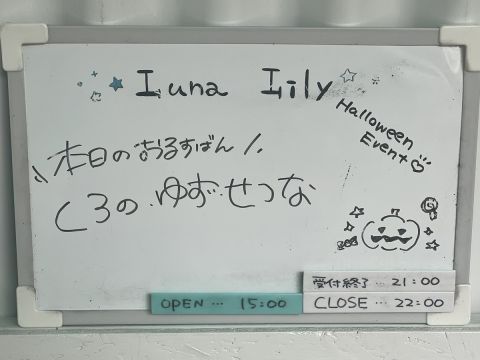 Luna Lily
Halloween
Event
本日のおるすばん
くろの ゆず せつな
受付終了…21:00
OPEN…15:00
CLOSE…22:00